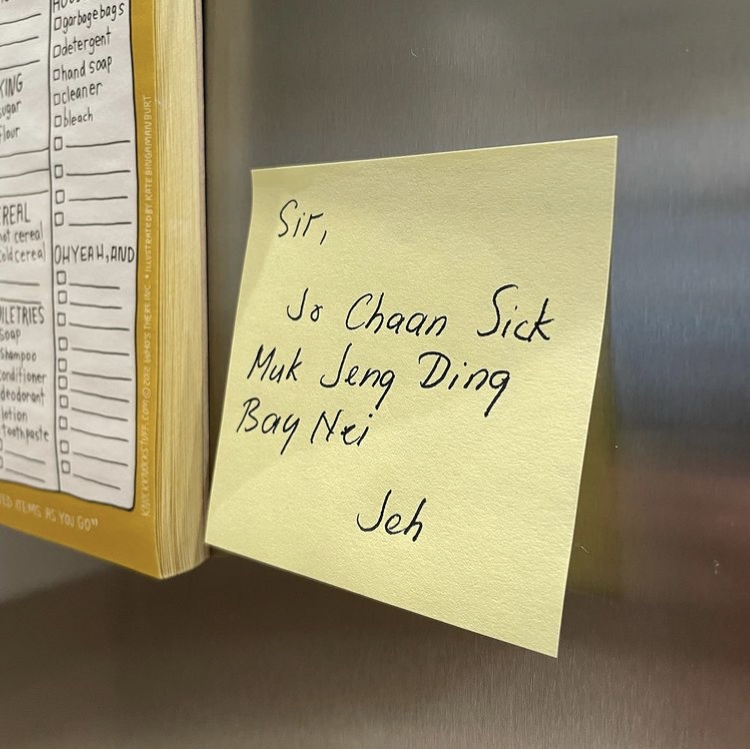 garbage bags
detergent
hand soap
cleaner
bleach
KING
sugar
flour
EREAL
hot cereal
cold cereal
OH YEAH, AND
ILETRIES
soap
shampoo
conditioner
deodorant
lotion
toothpaste
ITEMS AS YOU GO"
KNOCKKNOCKSTUFF.COM © 2012 WHO'S THERE INC. • ILLUSTRATED BY KATE BINGAMAN BURT
Sir,
Jo Chaan Sick
Muk Jeng Ding
Bay Nei
Jeh